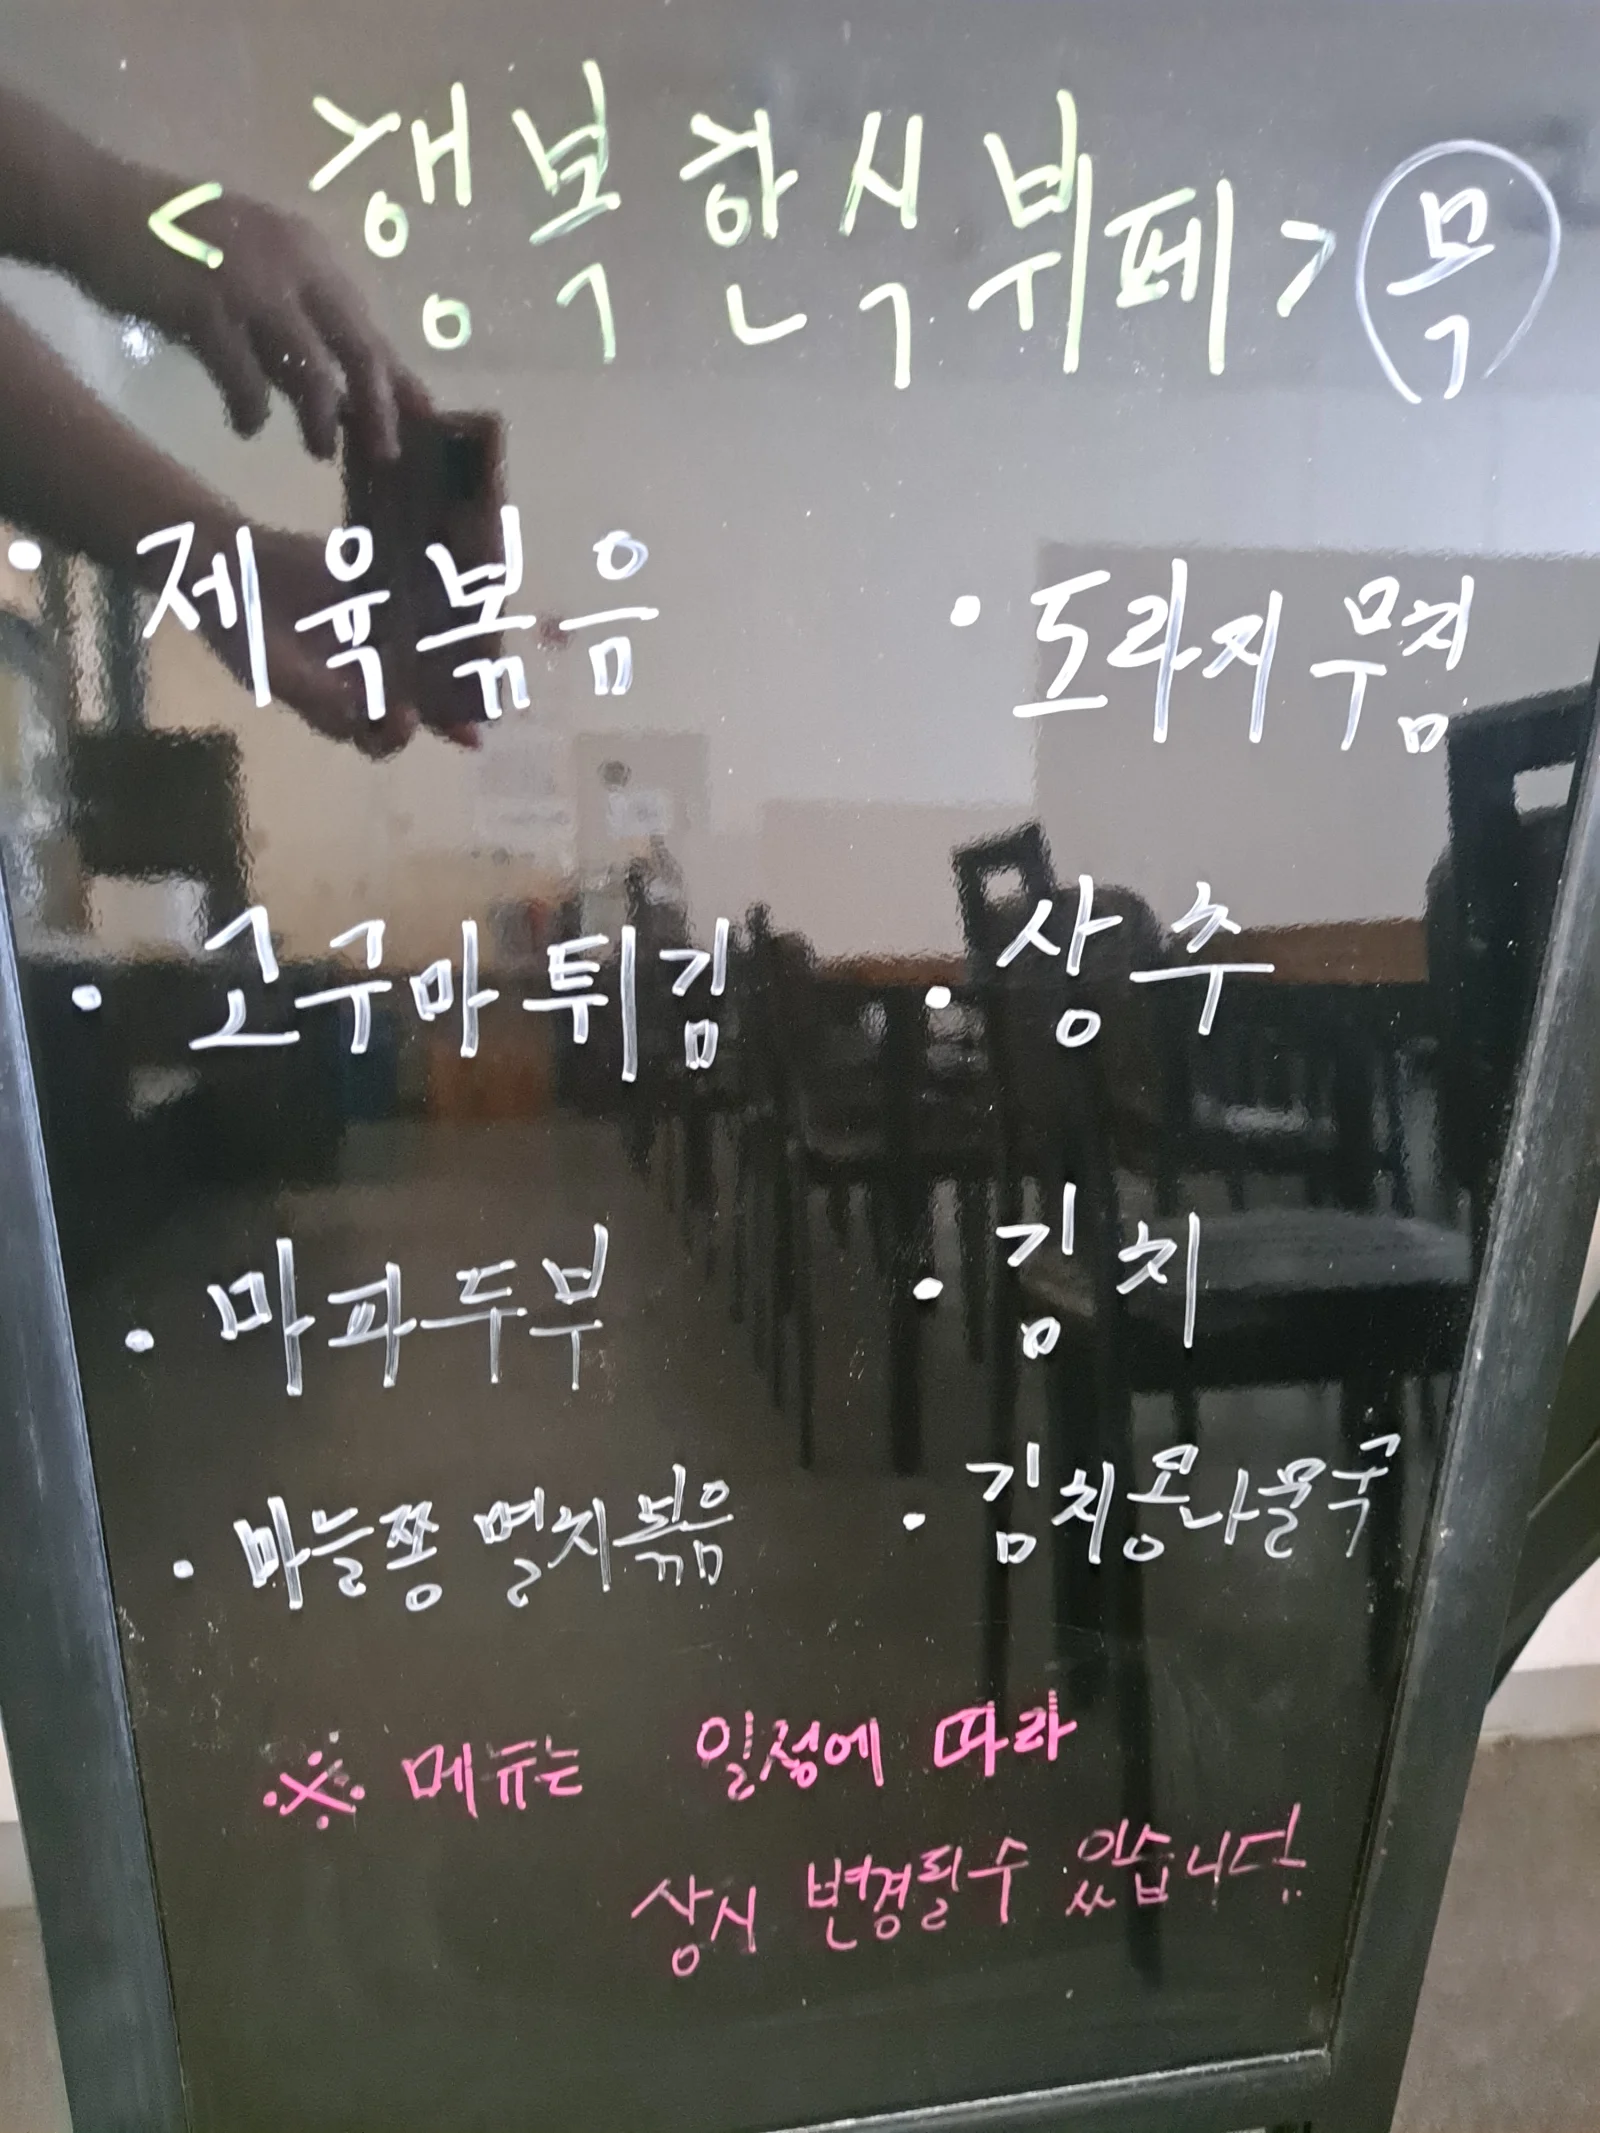 < 행복한식뷔페 > 목
• 제육볶음
• 도라지무침
• 고구마튀김
• 상추
• 마파두부
• 김치
• 마늘쫑 멸치볶음
• 김치콩나물국
※ 메뉴는 일정에 따라
상시 변경될수 있습니다!